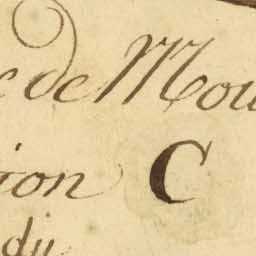 e de Mou
ion C
du